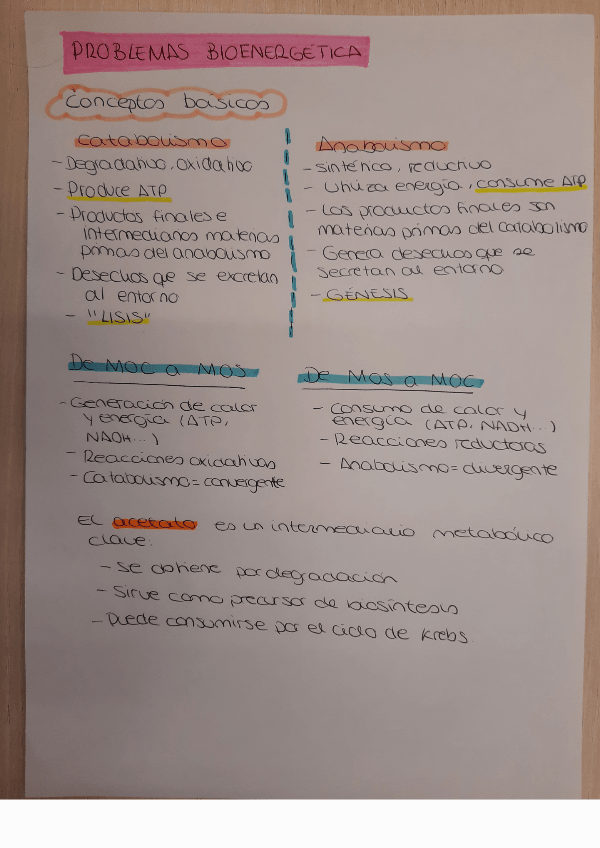 PROBLEMAS BIOENERGÉTICA
Conceptos básicos
Catabolismo
- Degradativo, oxidativo
- Produce ATP
- Productos finales e
intermediarios materias
primas del anabolismo
- Desechos que se excretan
al entorno
- "LISIS"
Anabolismo
- sintético, reductivo
- Utiliza energía, consume ATP
- Los productos finales son
materias primas del catabolismo
- Genera desechos que se
secretan al entorno
- GÉNESIS
De MOC a MOS
- Generación de calor
y energía (ATP,
NADH...)
- Reacciones oxidativas
- Catabolismo = convergente
De MOS a MOC
- Consumo de calor y
energía (ATP, NADH...)
- Reacciones reductoras
- Anabolismo = divergente
El acetato es un intermediario metabólico
clave:
- Se obtiene por degradación
- Sirve como precursor de biosíntesis
- Puede consumirse por el ciclo de Krebs